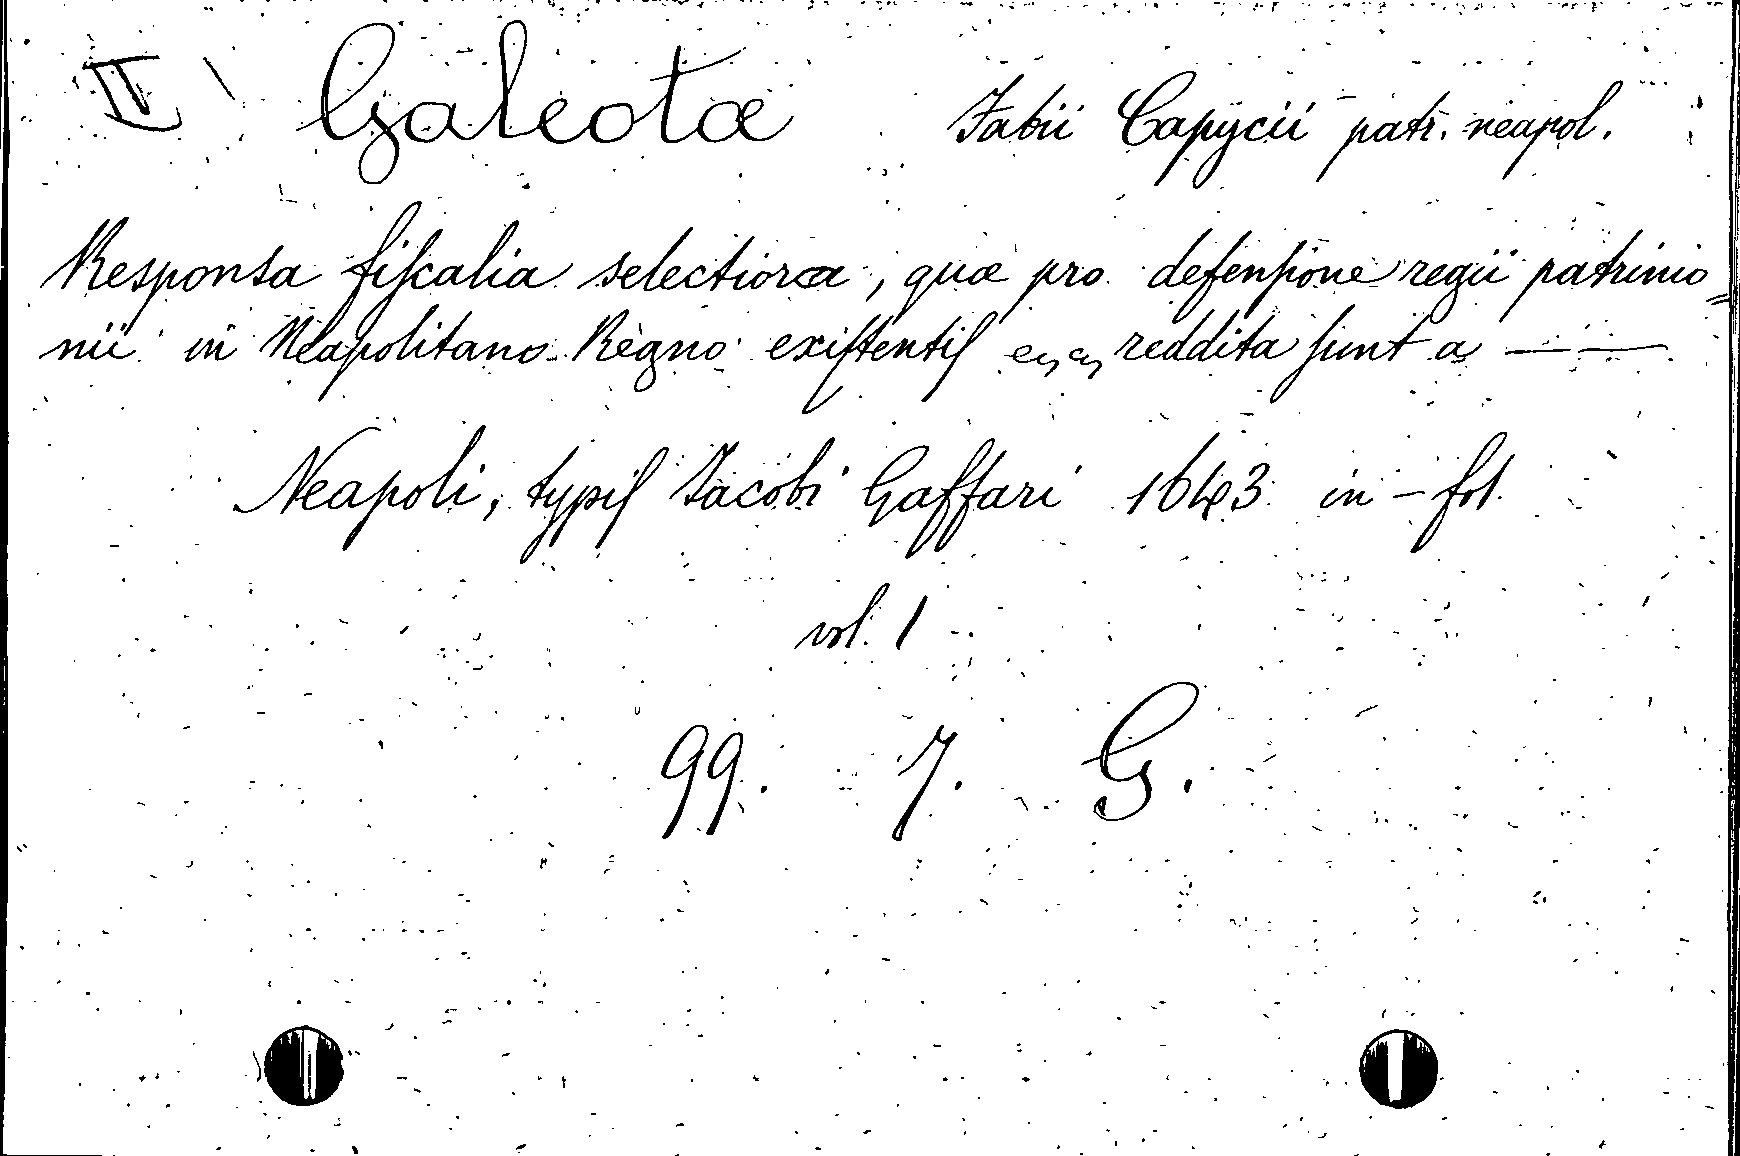 IV Galeotæ Fabii Capycii patr. neapol.
Responsa fiſcalia selectiora, quæ pro defenſione regii patrimo=
nii in Neapolitano Regno exiſtentiſ reddita ſunt a — —
Neapoli, typiſ Jacobi Gaffari 1643 in-fol.
vol. 1
99. 7. G.